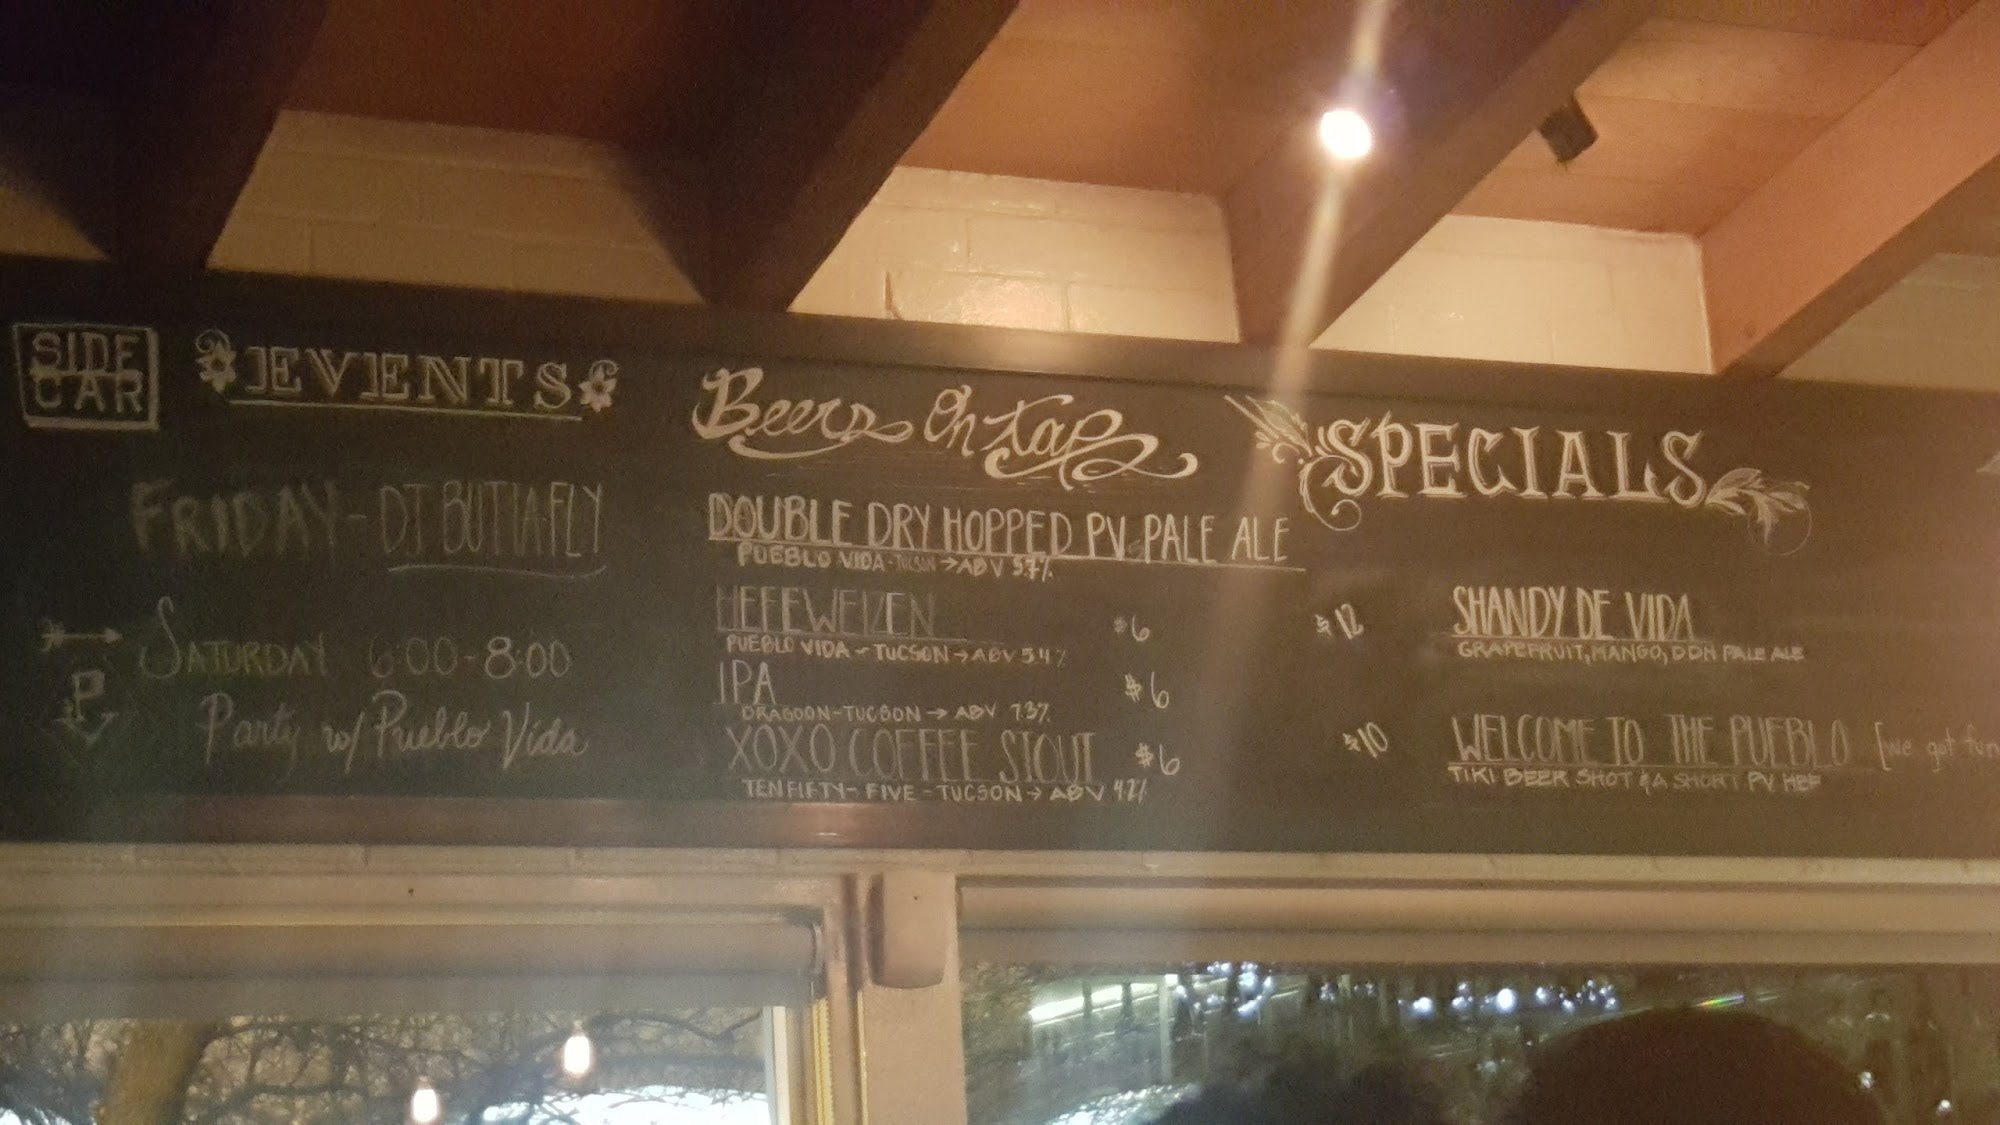 SIDE
CAR
EVENTS
FRIDAY - DJ BUTTAFLY
SATURDAY 6:00-8:00
P
Party w/ Pueblo Vida
Beers On tap
DOUBLE DRY HOPPED PV PALE ALE
PUEBLO VIDA - TUCSON → ABV 5.7%
HEFEWEIZEN $6
PUEBLO VIDA - TUCSON → ABV 5.4%
IPA $6
DRAGOON - TUCSON → ABV 7.3%
XOXO COFFEE STOUT $6
TEN FIFTY-FIVE - TUCSON → ABV 4.2%
SPECIALS
$12 SHANDY DE VIDA
GRAPEFRUIT, MANGO, DDH PALE ALE
$10 WELCOME TO THE PUEBLO [we got fun
TIKI BEER SHOT & A SHORT PV HEF